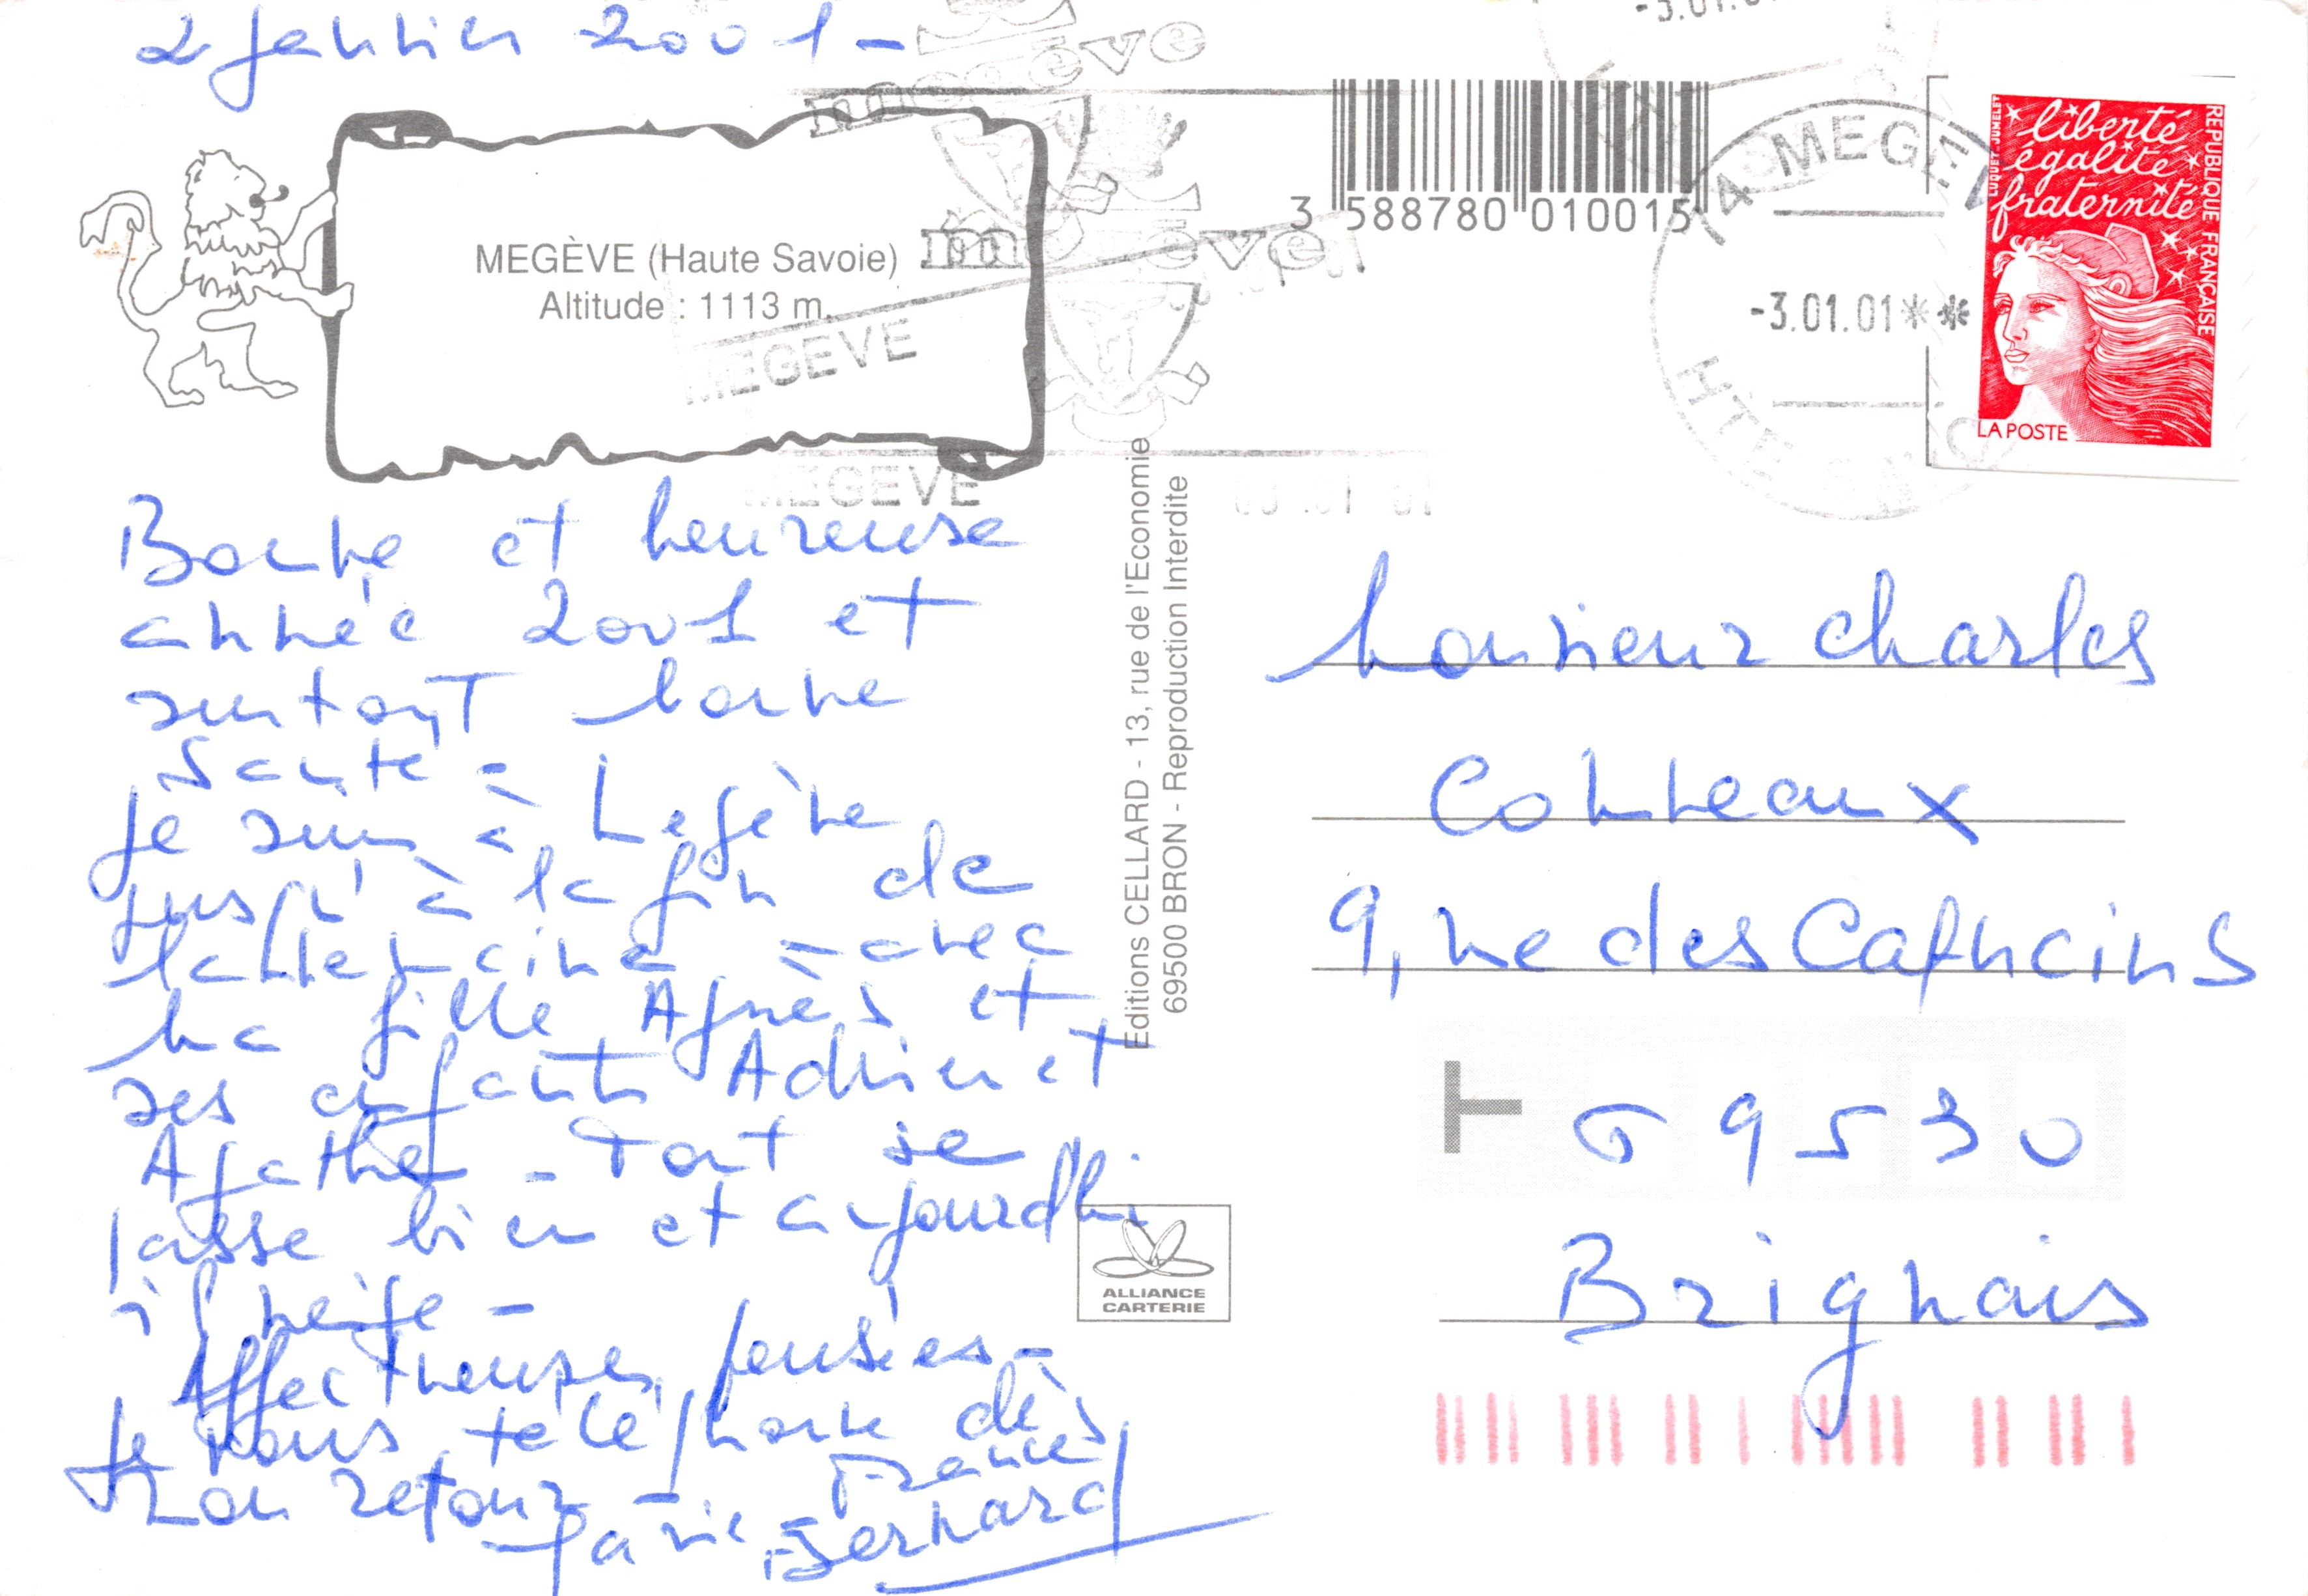 2 janvier 2001 -
megève
megève
MEGÈVE (Haute Savoie)
Altitude : 1113 m.
MEGEVE
MEGEVE
megève
3 588780 010015
-3.01.0
74 MEGEVE
-3.01.01**
HTE SAVOIE
liberté
égalité
fraternité
RÉPUBLIQUE FRANÇAISE
LUQUET-JUMELET
LA POSTE
Bonne et heureuse
année 2001 et
surtout bonne
Santé -
je suis à Megève
jusqu'à la fin de
la semaine - avec
ma fille Agnès et
ses enfants Adrien et
Agathe - Tout se
passe bien et aujourd'hui
il neige -
Affectueuses pensées -
Je vous téléphone dès
mon retour -
Bernard
Editions CELLARD - 13, rue de l'Economie
69500 BRON - Reproduction Interdite
ALLIANCE
CARTERIE
Monsieur Charles
Conneaux
9, rue des Capucins
T 69530
Brignais